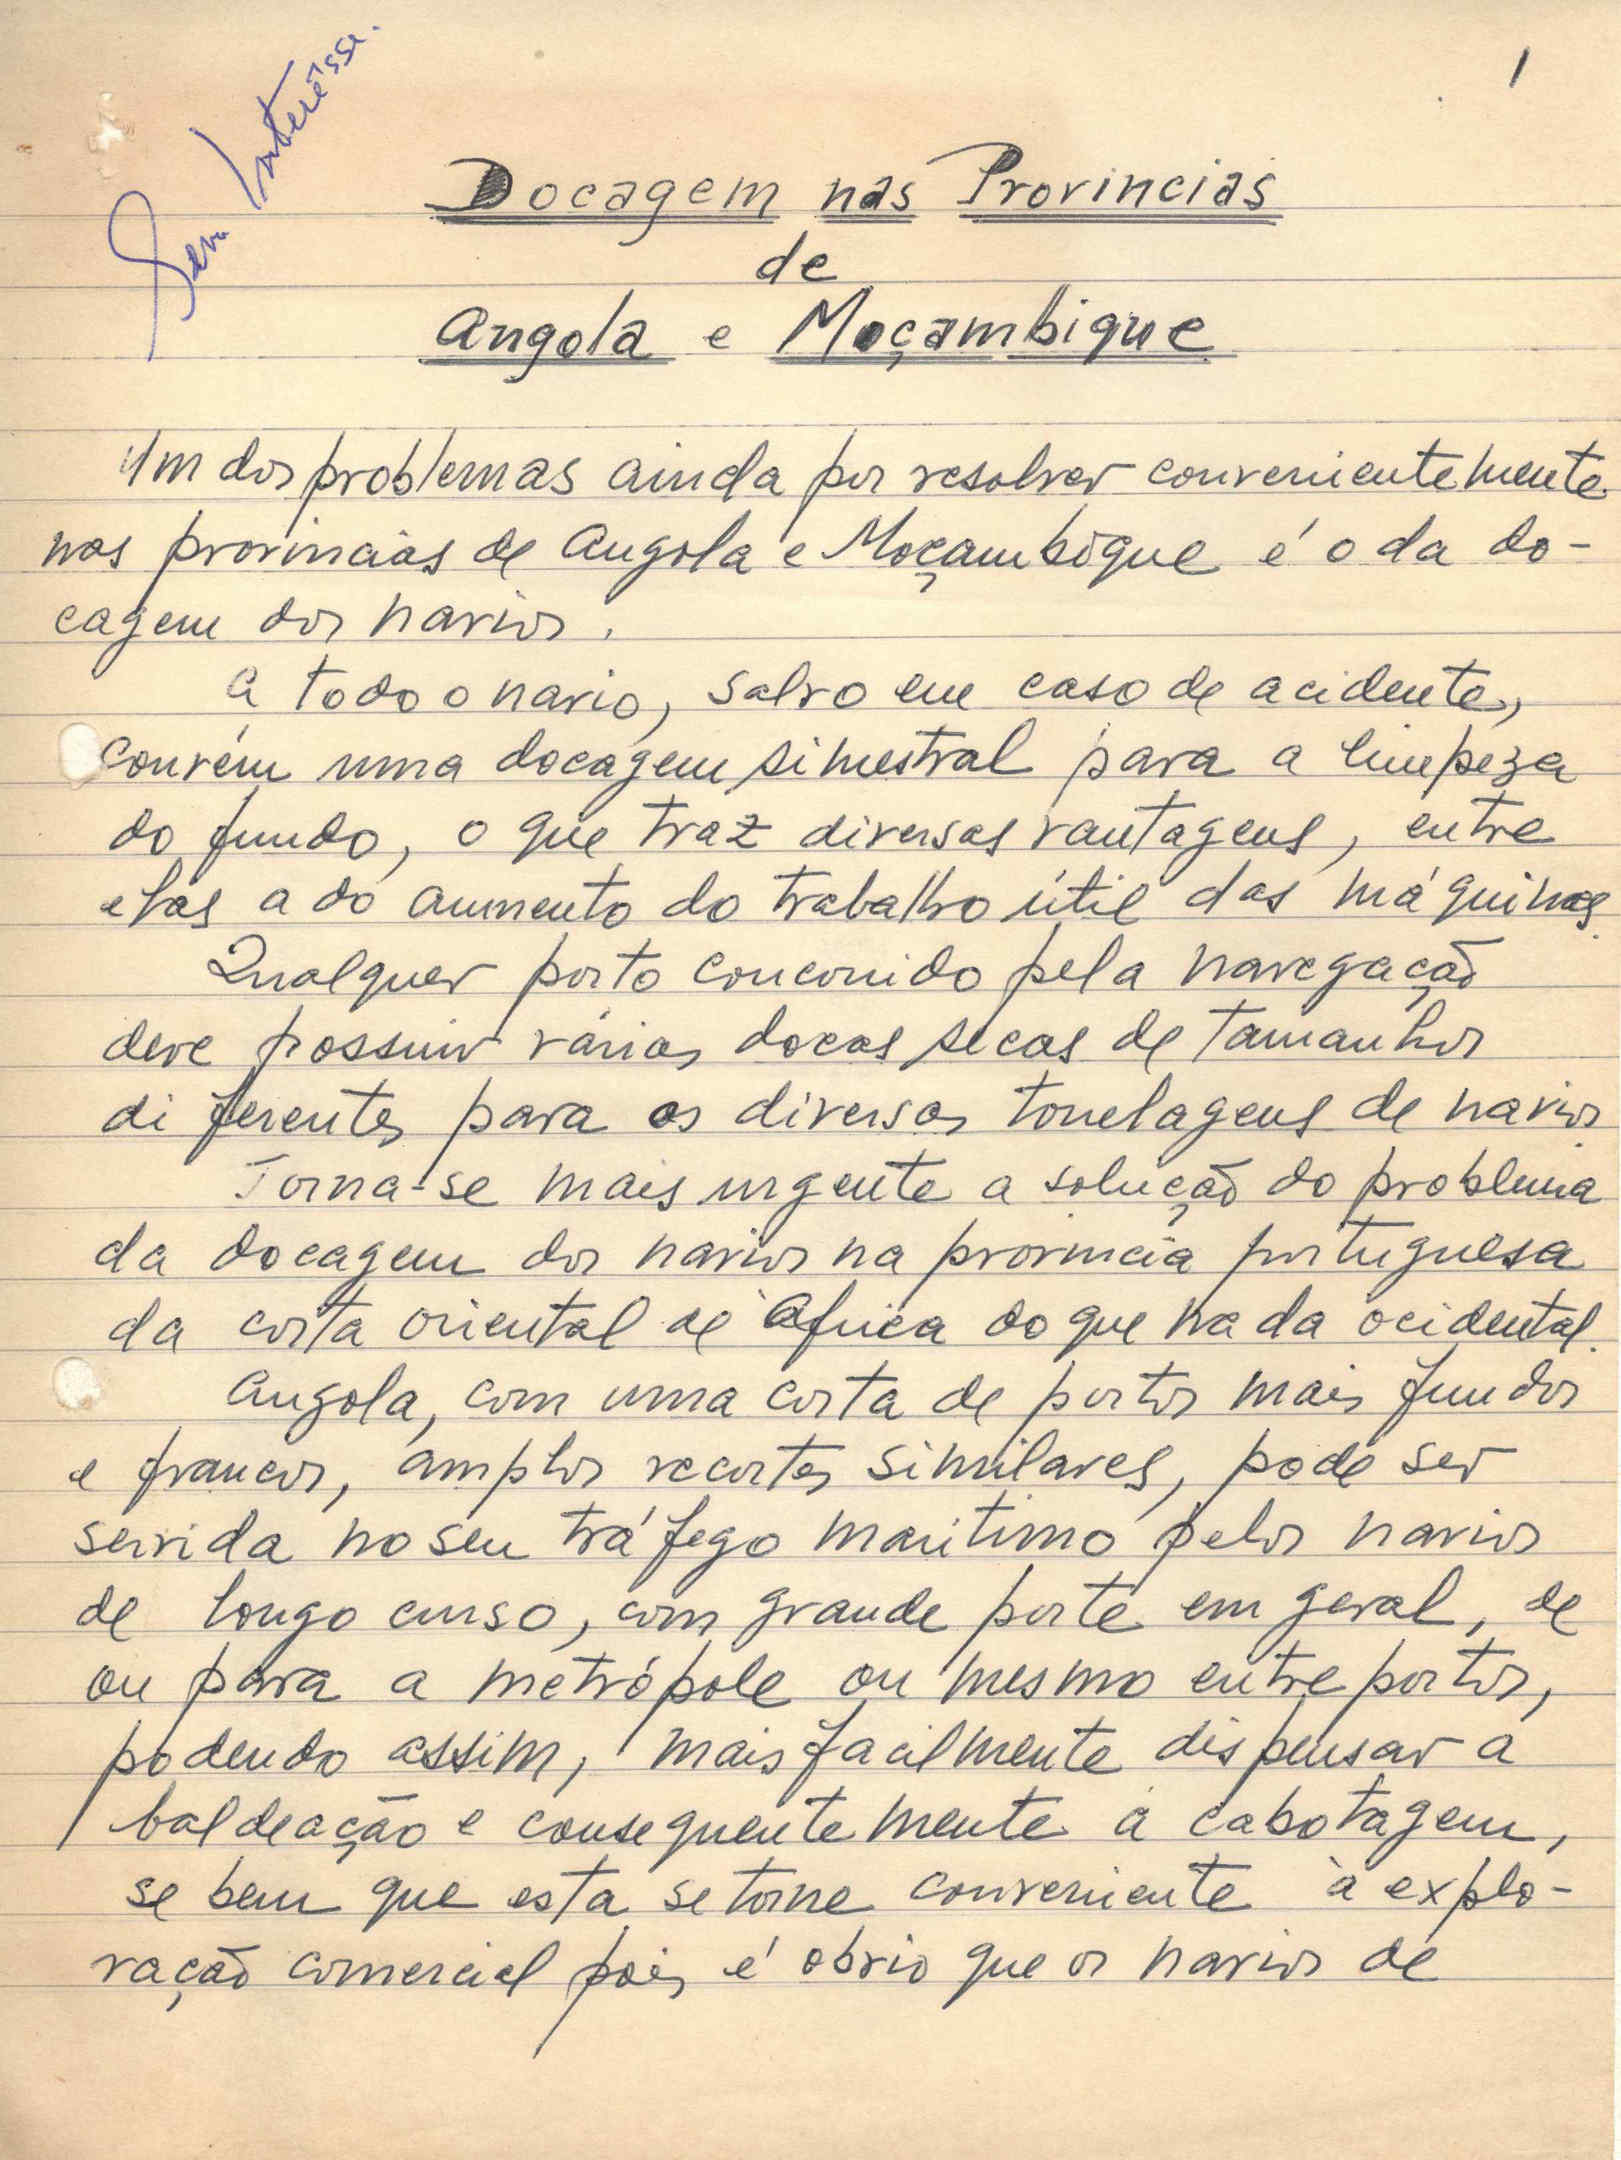 1
Sem Interêsse.
Docagem nas Provincias
de
Angola e Moçambique
Um dos problemas ainda por resolver convenientemente
nas provincias de Angola e Moçambique é o da do-
cagem dos navios.
A todo o navio, salvo em caso de acidente,
convém uma docagem simestral para a limpeza
do fundo, o que traz diversas vantagens, entre
elas a do aumento do trabalho útil das máquinas.
Qualquer porto concorrido pela navegação
deve possuir várias docas secas de tamanhos
diferentes para as diversas tonelagens de navios.
Torna-se mais urgente a solução do problema
da docagem dos navios na provincia portuguesa
da costa oriental de Africa do que na da ocidental.
Angola, com uma costa de portos mais fundos
e francos, amplos recortes similares, pode ser
servida no seu tráfego maritimo pelos navios
de longo curso, com grande porte em geral, de
ou para a metrópole ou mesmo entre portos,
podendo assim, mais facilmente dispensar a
baldeação e consequentemente a cabotagem,
se bem que esta se torne conveniente à explo-
ração comercial pois é obvio que os navios de